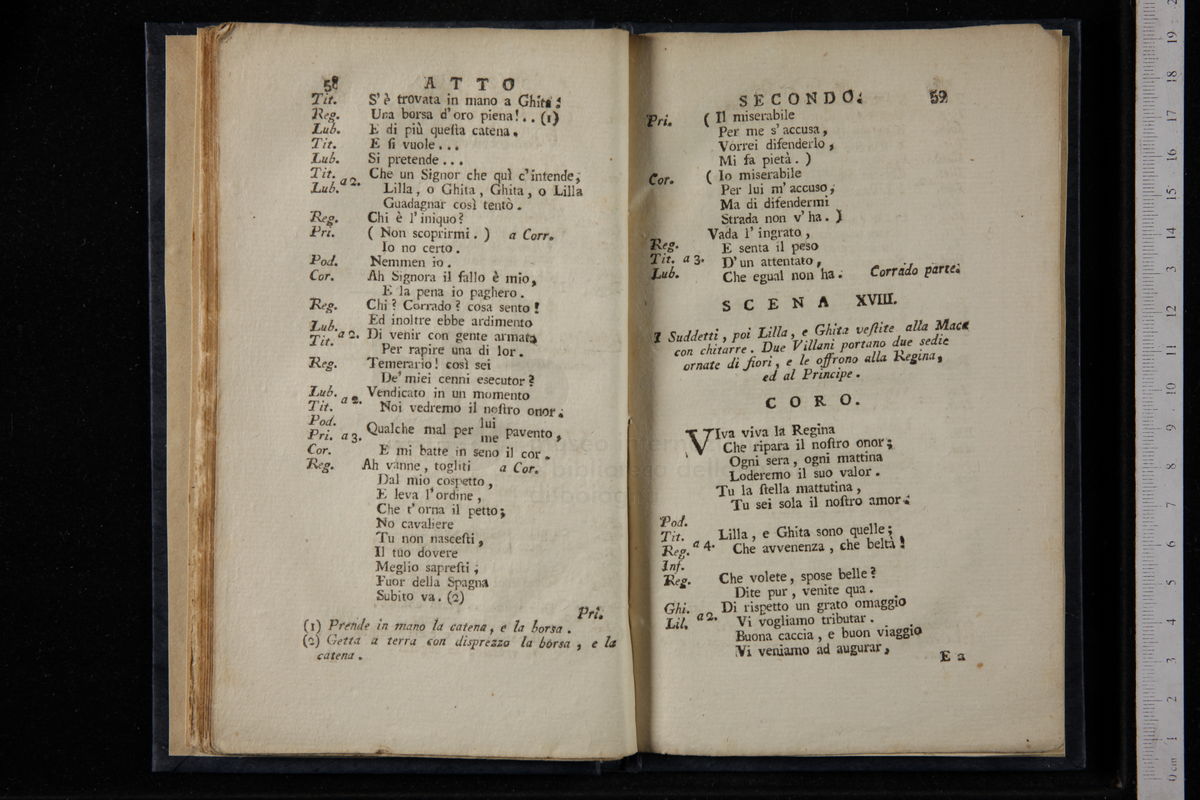 58 ATTO
Tit. S'è trovata in mano a Ghita:
Reg. Una borsa d'oro piena!.. (1)
Lub. E di più questa catena.
Tit. E si vuole...
Lub. Si pretende...
Tit. Lub. a 2. Che un Signor che quì c'intende,
Lilla, o Ghita, Ghita, o Lilla
Guadagnar così tentò.
Reg. Chi è l'iniquo?
Pri. ( Non scoprirmi. ) a Corr.
Io no certo.
Pod. Nemmen io.
Cor. Ah Signora il fallo è mio,
E la pena io paghero.
Reg. Chi? Corrado? cosa sento!
Lub. Tit. a 2. Ed inoltre ebbe ardimento
Di venir con gente armata
Per rapire una di lor.
Reg. Temerario! così sei
De' miei cenni esecutor?
Lub. Tit. a 2. Vendicato in un momento
Noi vedremo il nostro onor.
Pod. Pri. a 3. Qualche mal per lui me pavento,
Cor. E mi batte in seno il cor.
Reg. Ah vanne, togliti a Cor.
Dal mio cospetto,
E leva l'ordine,
Che t'orna il petto;
No cavaliere
Tu non nascesti,
Il tuo dovere
Meglio sapresti;
Fuor della Spagna
Subito va. (2)
Pri.
(1) Prende in mano la catena, e la borsa.
(2) Getta a terra con disprezzo la borsa, e la
catena.
SECONDO. 59
Pri. ( Il miserabile
Per me s'accusa,
Vorrei difenderlo,
Mi fa pietà. )
Cor. ( Io miserabile
Per lui m'accuso,
Ma di difendermi
Strada non v'ha. )
Reg. Tit. Lub. a 3. Vada l'ingrato,
E senta il peso
D'un attentato,
Che egual non ha. Corrado parte.
SCENA XVIII.
I Suddetti, poi Lilla, e Ghita vestite alla Mac
con chitarre. Due Villani portano due sedie
ornate di fiori, e le offrono alla Regina,
ed al Principe.
CORO.
VIva viva la Regina
Che ripara il nostro onor;
Ogni sera, ogni mattina
Loderemo il suo valor.
Tu la stella mattutina,
Tu sei sola il nostro amor.
Pod. Tit. Reg. Inf. a 4. Lilla, e Ghita sono quelle;
Che avvenenza, che beltà!
Reg. Che volete, spose belle?
Dite pur, venite qua.
Ghi. Lil. a 2. Di rispetto un grato omaggio
Vi vogliamo tributar.
Buona caccia, e buon viaggio
Vi veniamo ad augurar,
E a